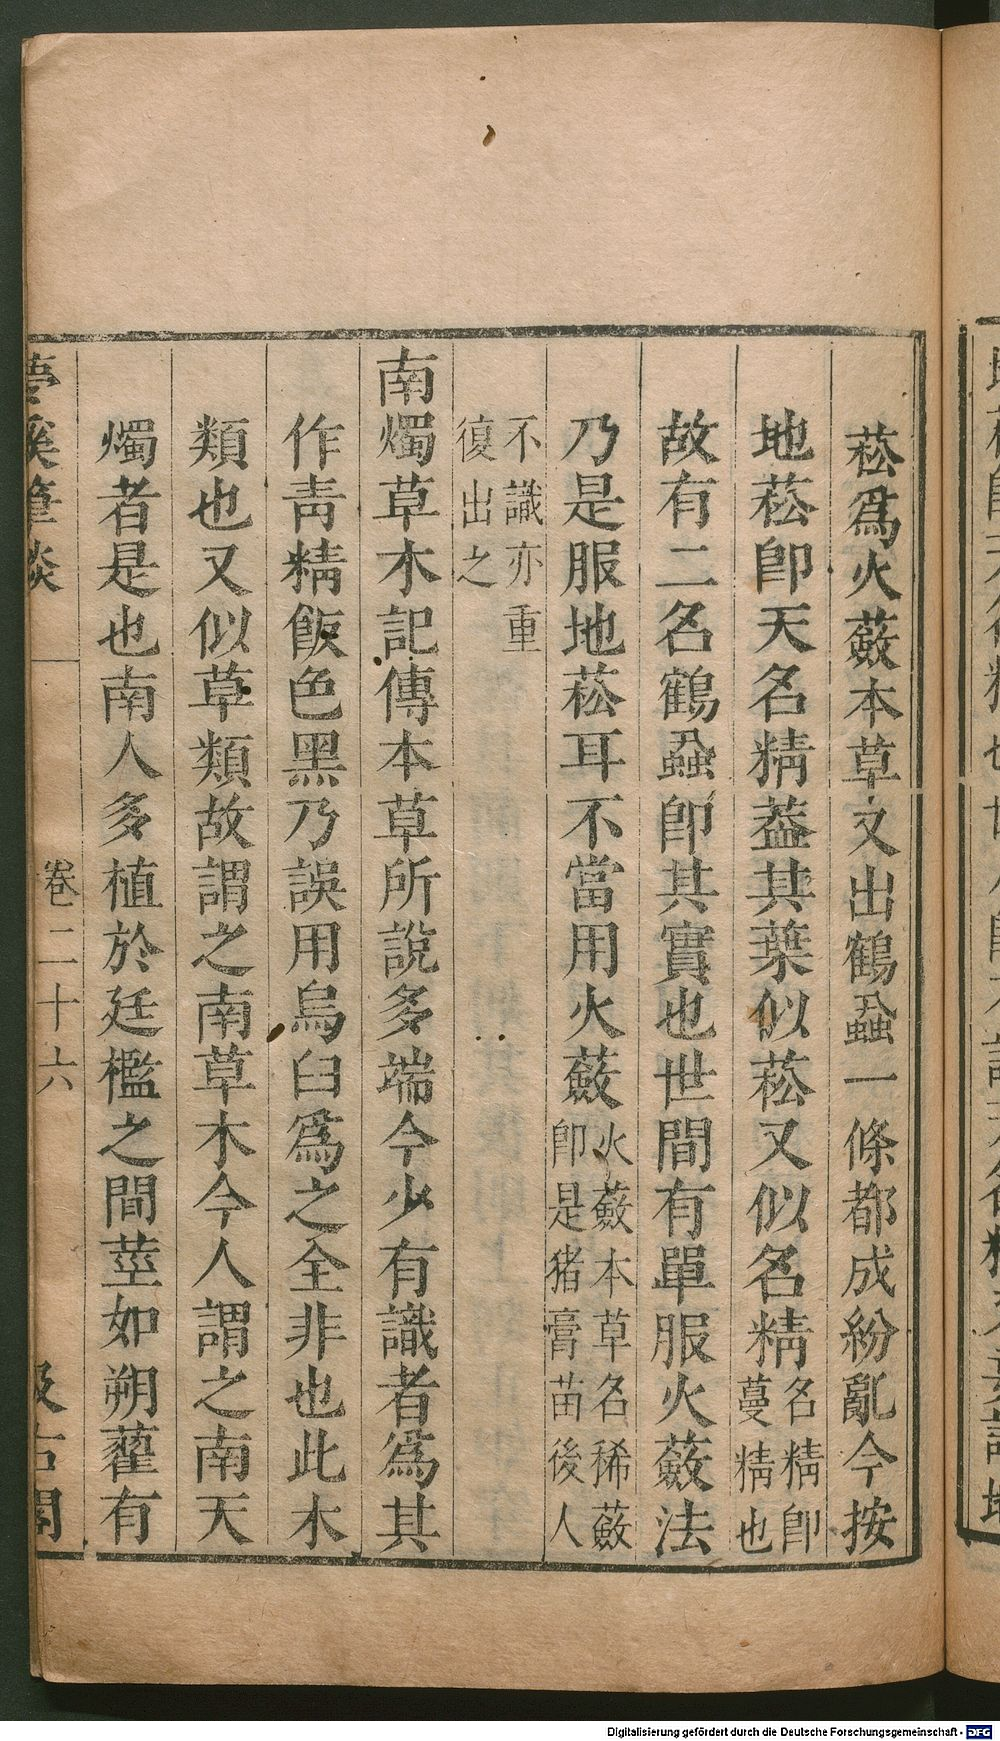 菘爲火蘞本草文出鶴蝨一條都成紛亂今按
地菘卽天名精葢其葉似菘又似名精名精卽蔓精也
故有二名鶴蝨卽其實也世間有單服火蘞法
乃是服地菘耳不當用火蘞火蘞本草名稀蘞卽是猪膏苗後人
不識亦重復出之
南燭草木記傳本草所說多端今少有識者爲其
作青精飯色黑乃誤用烏臼爲之全非也此木
類也又似草類故謂之南草木今人謂之南天
燭者是也南人多植於廷檻之間莖如朔藋有
夢溪筆談
卷二十六
汲古閣
Digitalisierung gefördert durch die Deutsche Forschungsgemeinschaft - DFG